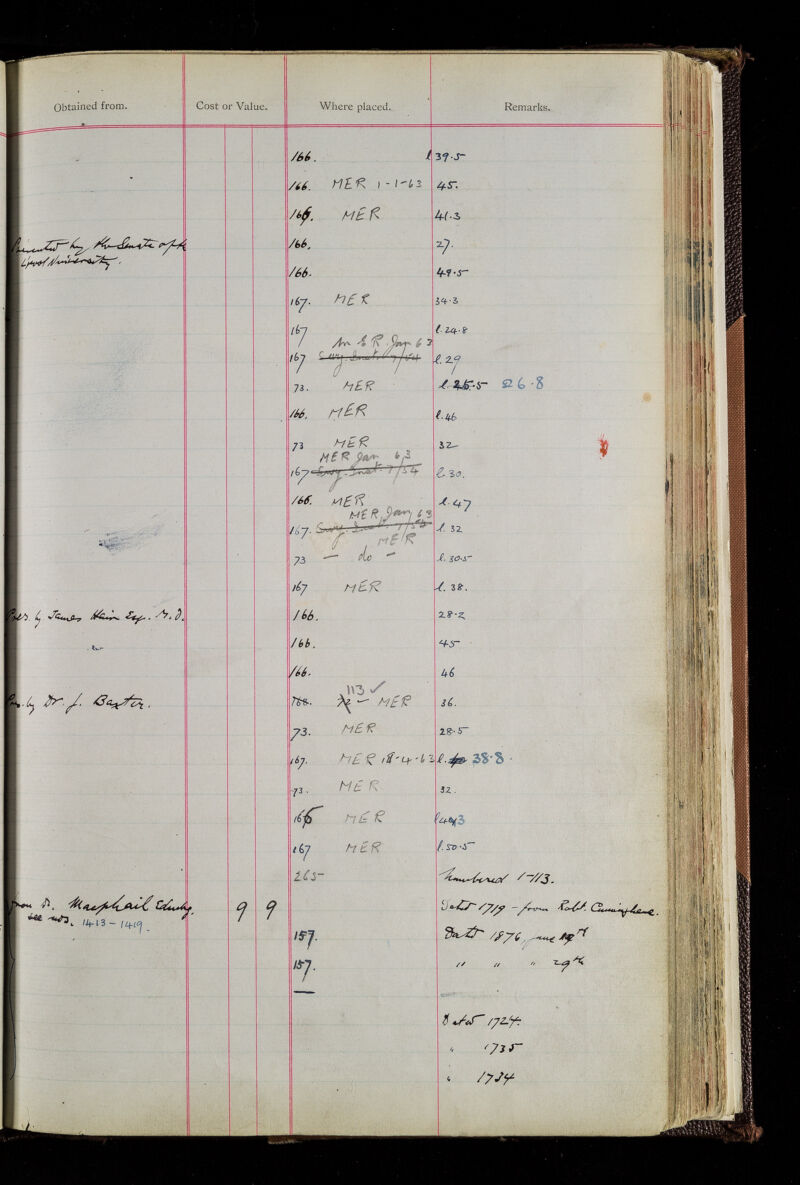 Obtained from. Cost or Value. Where placed. Remarks.
166. l 39.5
166. MER 1-1-63 45.
166. MER 41.3
Presented by the Senate of the 166. 27.
University.
166. 49.5
167. MER 34.3
167 l. 24.8
M E R. Jan 63
167 Surg. Inst. 7/54 l. 29
73. MER l. 25.5 26.8
166. MER l. 46
73 MER 32
MER Jan 63
167 Surg. Inst. 7/54 l. 30.
166. MER l. 47
MER, Jany 63
167. Surg. Inst. 7/54 l. 32
MER
73 — do — l. 30.5
167 MER l. 38.
Pres. by James Esq. M.D. 166. 28.2
166. 45
166. 46
113 ✓
Pres. by Dr. J. Baxter. 166. 72 - MER 36.
73. MER 28.5
167. MER 18-4-63 l. 38.8
73. MER 32.
166 MER
167 MER l. 50.5
265 Numbered 1-113.
from Dr. Macphail Edinburg. 9 9 Dated 1719 - from Robt. Cuninghame.
see nos. 1413 - 1419
157. Dated 1876, June
157. " " " 29th
—
Dated 1724.
" 1735
" 1734